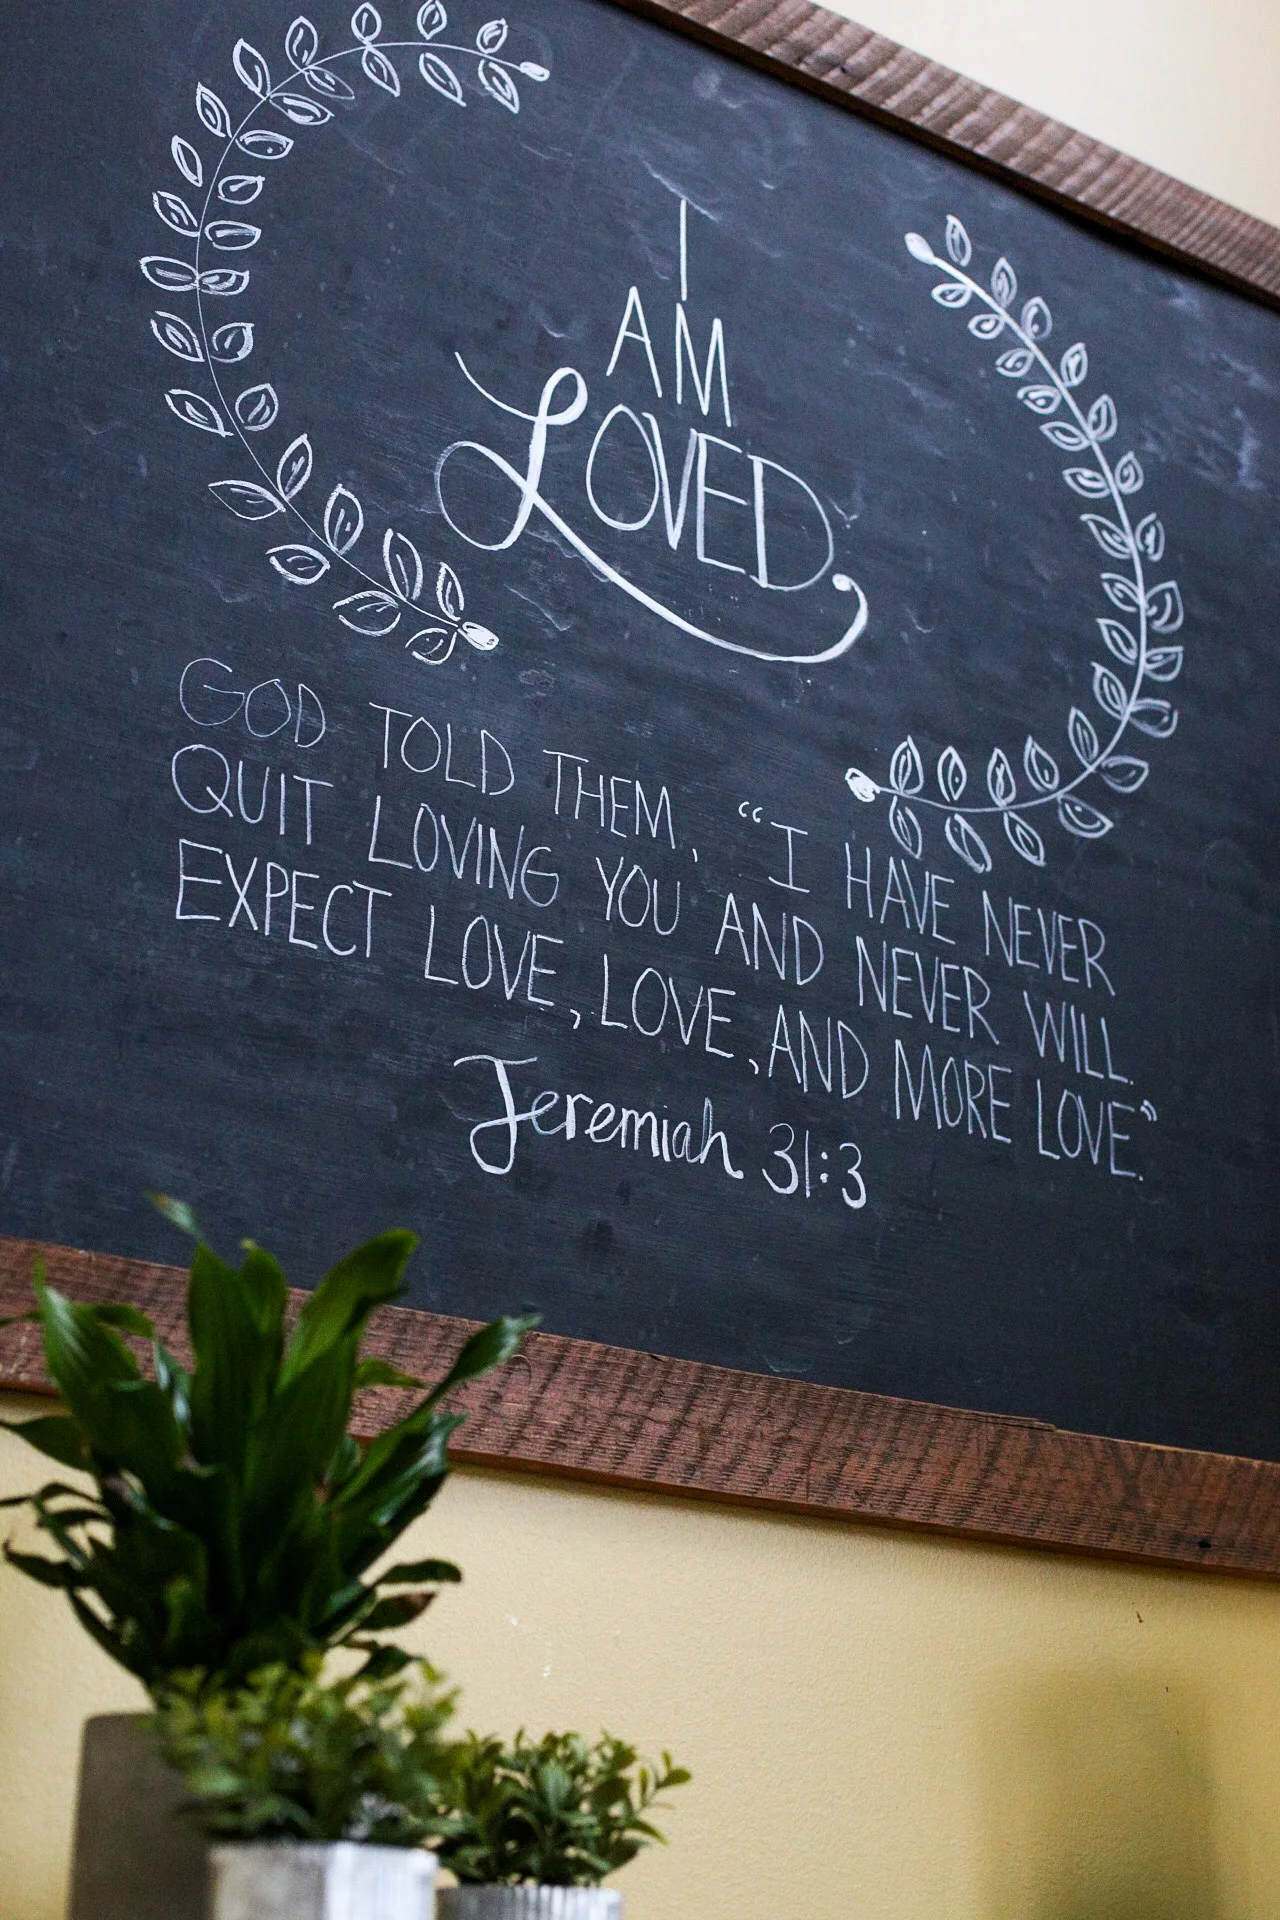 I
AM
LOVED
GOD TOLD THEM, “I HAVE NEVER
QUIT LOVING YOU AND NEVER WILL.
EXPECT LOVE, LOVE, AND MORE LOVE.”
Jeremiah 31:3